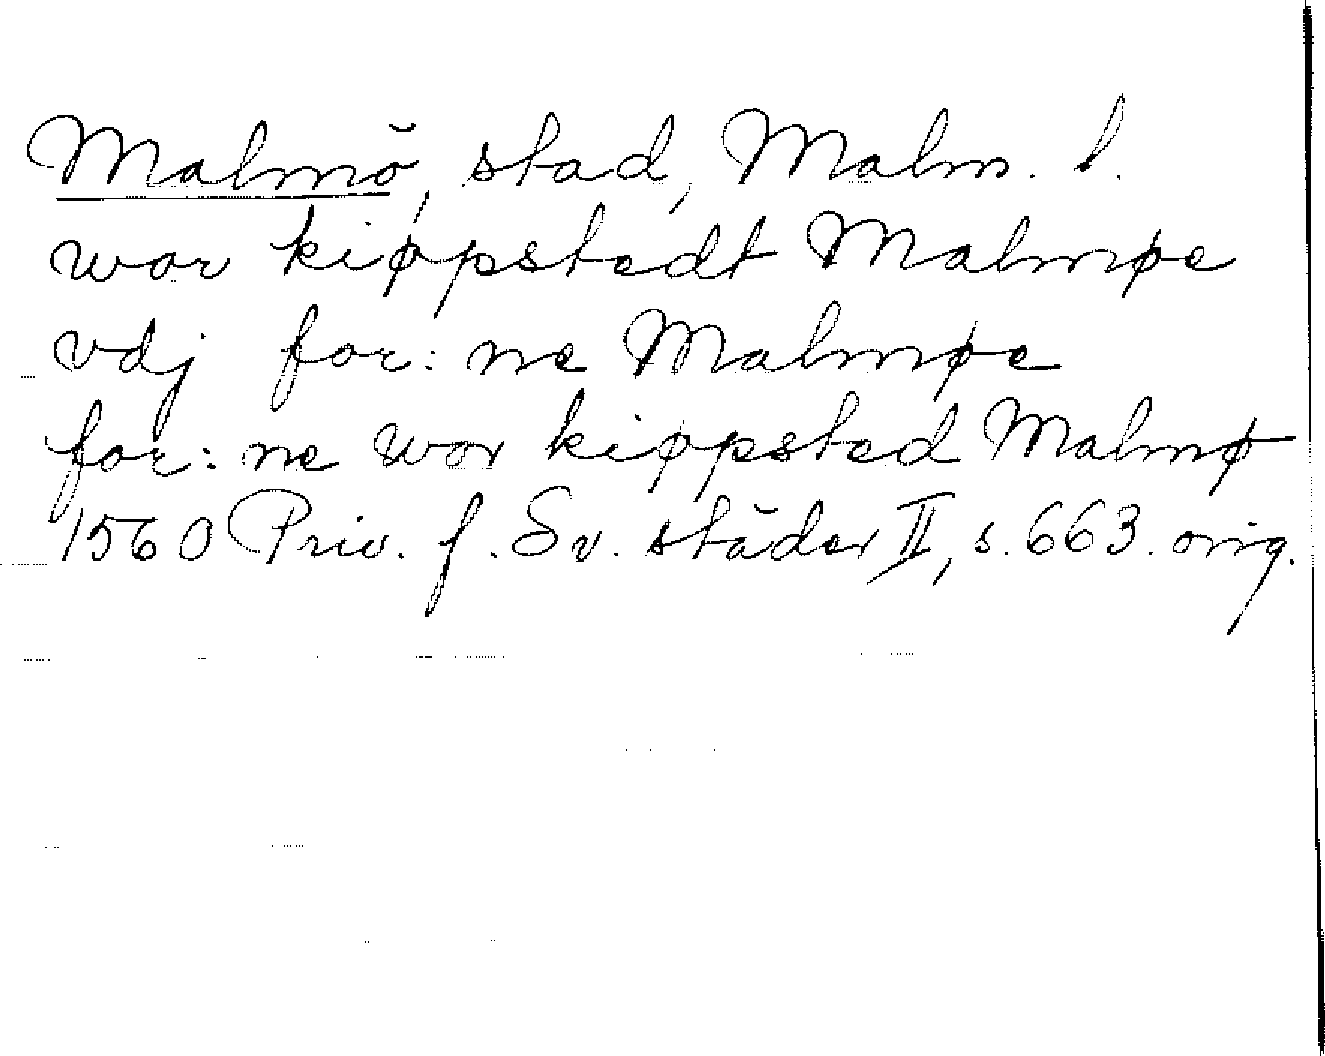 Malmö, stad, Malm. l.
wor kiøpstedt Malmøe
vdj for:ne Malmøe
for:ne wor kiøpsted Malmø
1560 Priv. f. Sv. städer II, s. 663. orig.